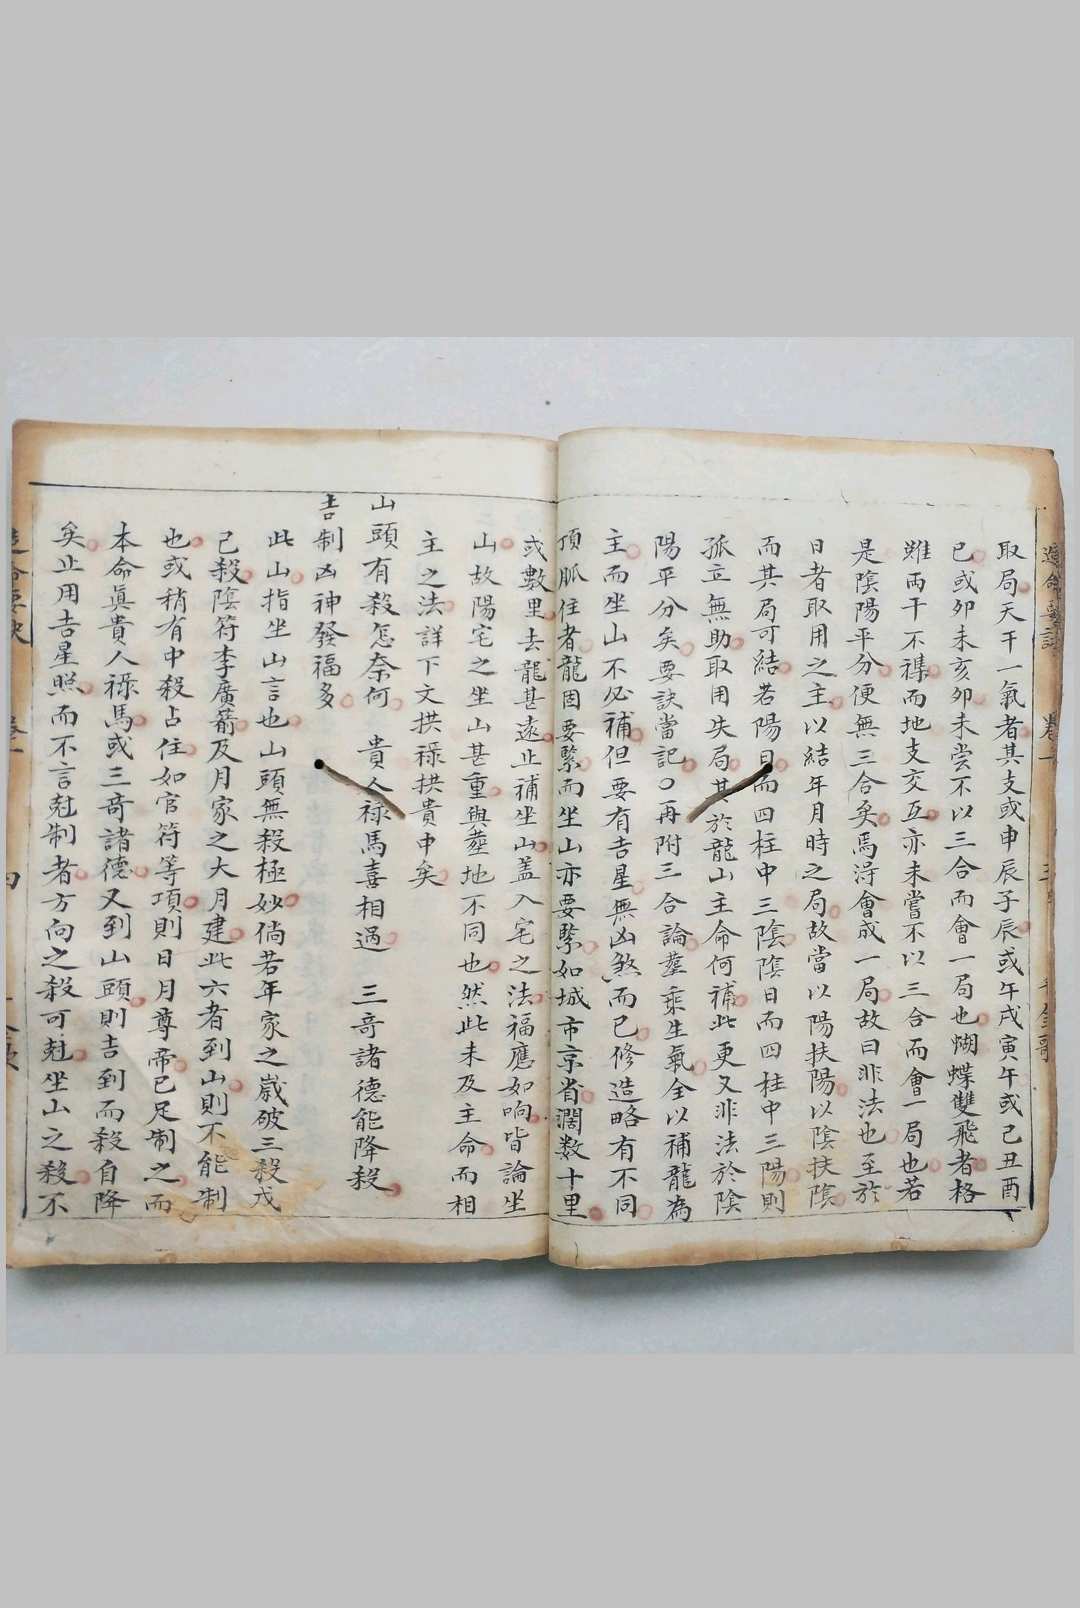 取局天干一氣者其支或申辰子辰或午戌寅午或己丑酉
已或卯未亥卯未尝不以三合而會一局也蝴蝶雙飛者格
雖両干不襍而地支交互亦未嘗不以三合而會一局也若
是陰陽平分便無三合矣焉淂會成一局故曰非法也至於
日者取用之主以結年月時之局故當以陽扶陽以陰扶陰
而其局可結若陽日而四柱中三陰陰日而四柱中三陽則
孤立無助取用失局其於龍山主命何補此更又非法於陰
陽平分矣要訣當記〇再附三合論塟乘生氣全以補龍為
主而坐山不必補但要有吉星無凶煞而已修造略有不同
頂脈住者龍固要緊而坐山亦要緊如城市京省濶数十里
或數里去龍甚遠止補坐山蓋入宅之法福應如响皆論坐
山故陽宅之坐山甚重與塟地不同也然此未及主命而相
主之法詳下文拱禄拱貴中矣
山頭有殺怎奈何 貴人禄馬喜相遇 三竒諸德能降殺
吉制凶神發福多
此山指坐山言也山頭無殺極妙倘若年家之歲破三殺戊
己殺陰符李廣箭及月家之大月建此六者到山則不能制
也或稍有中殺占住如官符等項則日月尊帝已足制之而
本命眞貴人禄馬或三竒諸德又到山頭則吉到而殺自降
矣止用吉星照而不言尅制者方向之殺可尅坐山之殺不